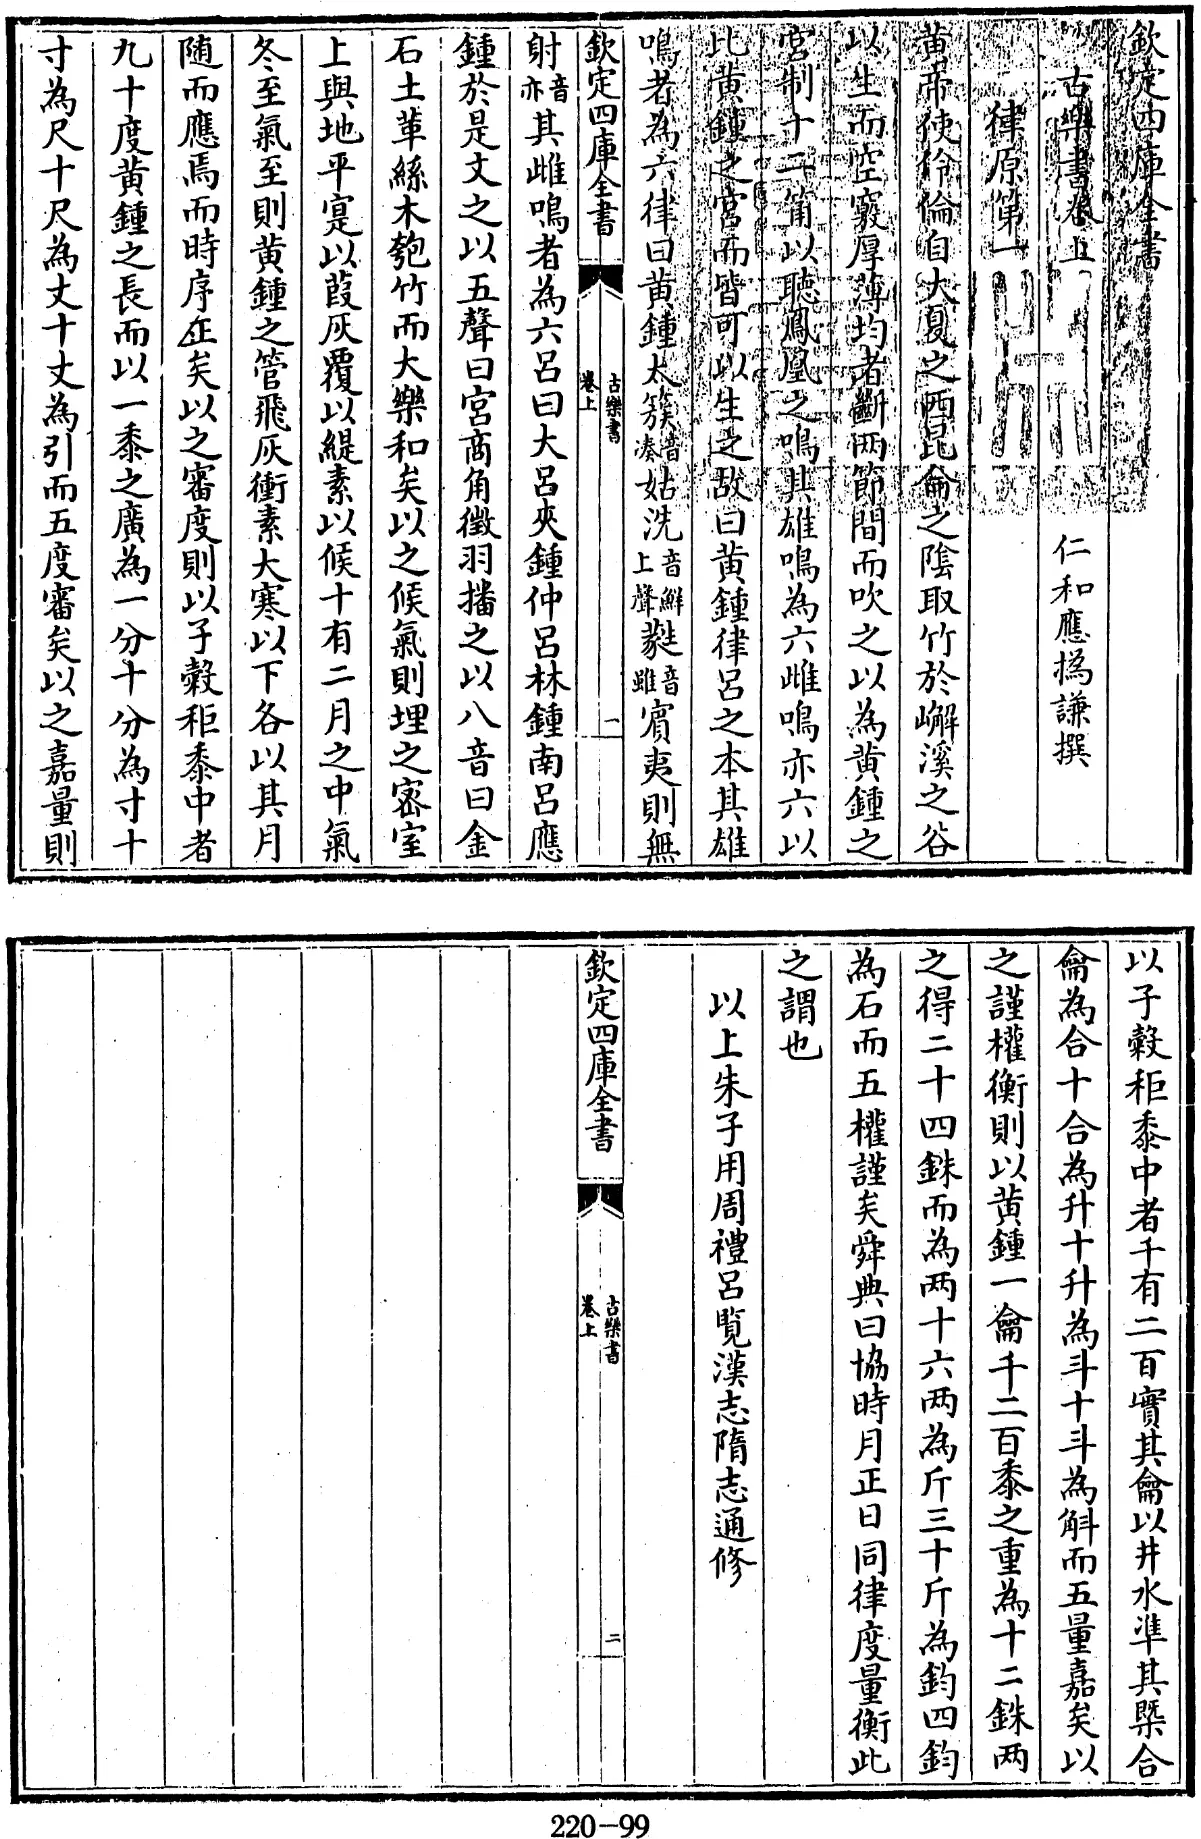 欽定四庫全書
古樂書卷上
仁和應撝謙撰
律原第一
黄帝使伶倫自大夏之西昆侖之陰取竹於嶰溪之谷
以生而空竅厚薄均者斷兩節間而吹之以為黄鍾之
宫制十二筩以聽鳳凰之鳴其雄鳴為六雌鳴亦六以
比黄鍾之宫而皆可以生之故曰黄鍾律吕之本其雄
鳴者為六律曰黄鍾太簇音湊姑洗音鮮上聲蕤音雖賓夷則無
欽定四庫全書
古樂書
卷上
一
射音亦其雌鳴者為六吕曰大吕夾鍾仲吕林鍾南吕應
鍾於是文之以五聲曰宫商角徵羽播之以八音曰金
石土革絲木匏竹而大樂和矣以之候氣則埋之密室
上與地平寔以葭灰覆以緹素以候十有二月之中氣
冬至氣至則黄鍾之管飛灰衝素大寒以下各以其月
隨而應焉而時序正矣以之審度則以子糓秬黍中者
九十度黄鍾之長而以一黍之廣為一分十分為寸十
寸為尺十尺為丈十丈為引而五度審矣以之嘉量則
以子糓秬黍中者千有二百實其龠以井水凖其槩合
龠為合十合為升十升為斗十斗為斛而五量嘉矣以
之謹權衡則以黄鍾一龠千二百黍之重為十二銖两
之得二十四銖而為两十六两為斤三十斤為鈞四鈞
為石而五權謹矣舜典曰協時月正日同律度量衡此
之謂也
以上朱子用周禮吕覧漢志隋志通修
欽定四庫全書
古樂書
卷上
二
220-99